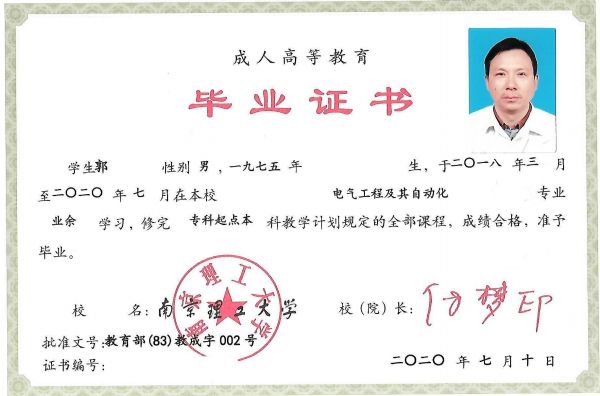 成人高等教育
毕业证书
学生郭 性别 男，一九七五 年 生，于二〇一八 年 三 月
至二〇二〇 年 七 月在本校 电气工程及其自动化 专业
业余 学习，修完 专科起点本 科教学计划规定的全部课程，成绩合格，准予
毕业。
校 名：南京理工大学 校（院）长：付梦印
批准文号：教育部(83)教成字 002 号
证书编号：
二〇二〇 年 七 月 十 日
南京理工大学